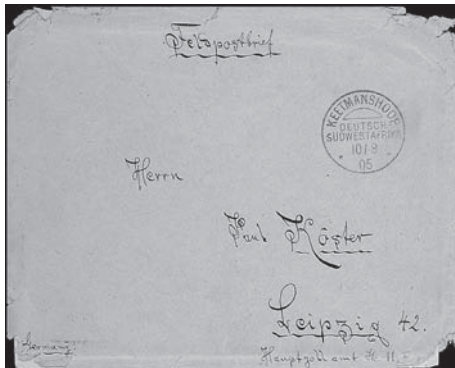 Feldpostbrief
KEETMANSHOOP
DEUTSCH-
SÜDWESTAFRIKA
10/8
05
Herrn
Paul Köster
Leipzig 42.
Germany.
Hauptzollamt II.